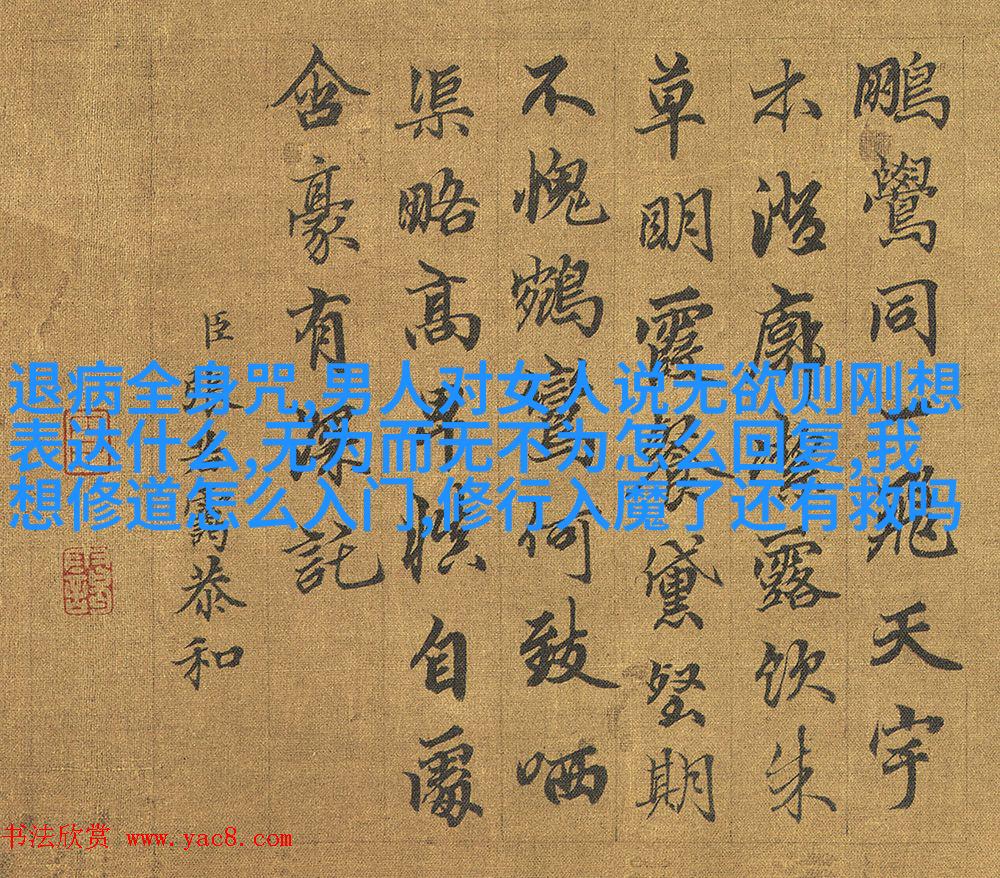 鵬鷽同飛天宇
木澄廓露飲朱
草明霞餐黛壑期
不愧鵷鸞何致哂
渠略高昇慎自處
含豪有深託
臣張恭和
退病全身咒,男人对女人说无欲则刚想
表达什么,无为而无不为怎么回复,我
想修道怎么入门,修行入魔了还有救吗
书法欣赏 www.yac8.com